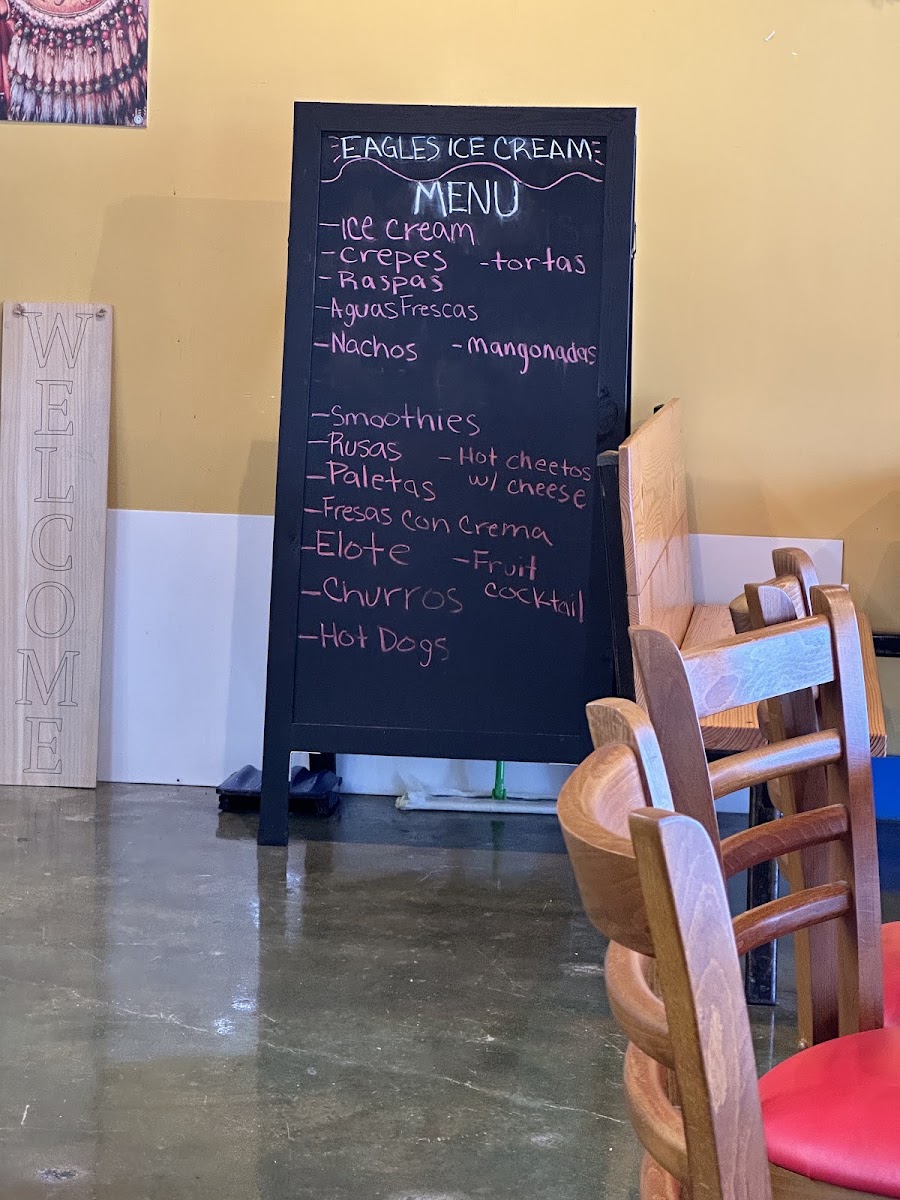 EAGLES ICE CREAM
MENU
-Ice cream
-crepes -tortas
-Raspas
-Aguas Frescas
-Nachos -mangonadas
-Smoothies
-Rusas -Hot cheetos
-Paletas w/ cheese
-Fresas con crema
-Elote -Fruit
-Churros cocktail
-Hot Dogs
WELCOME